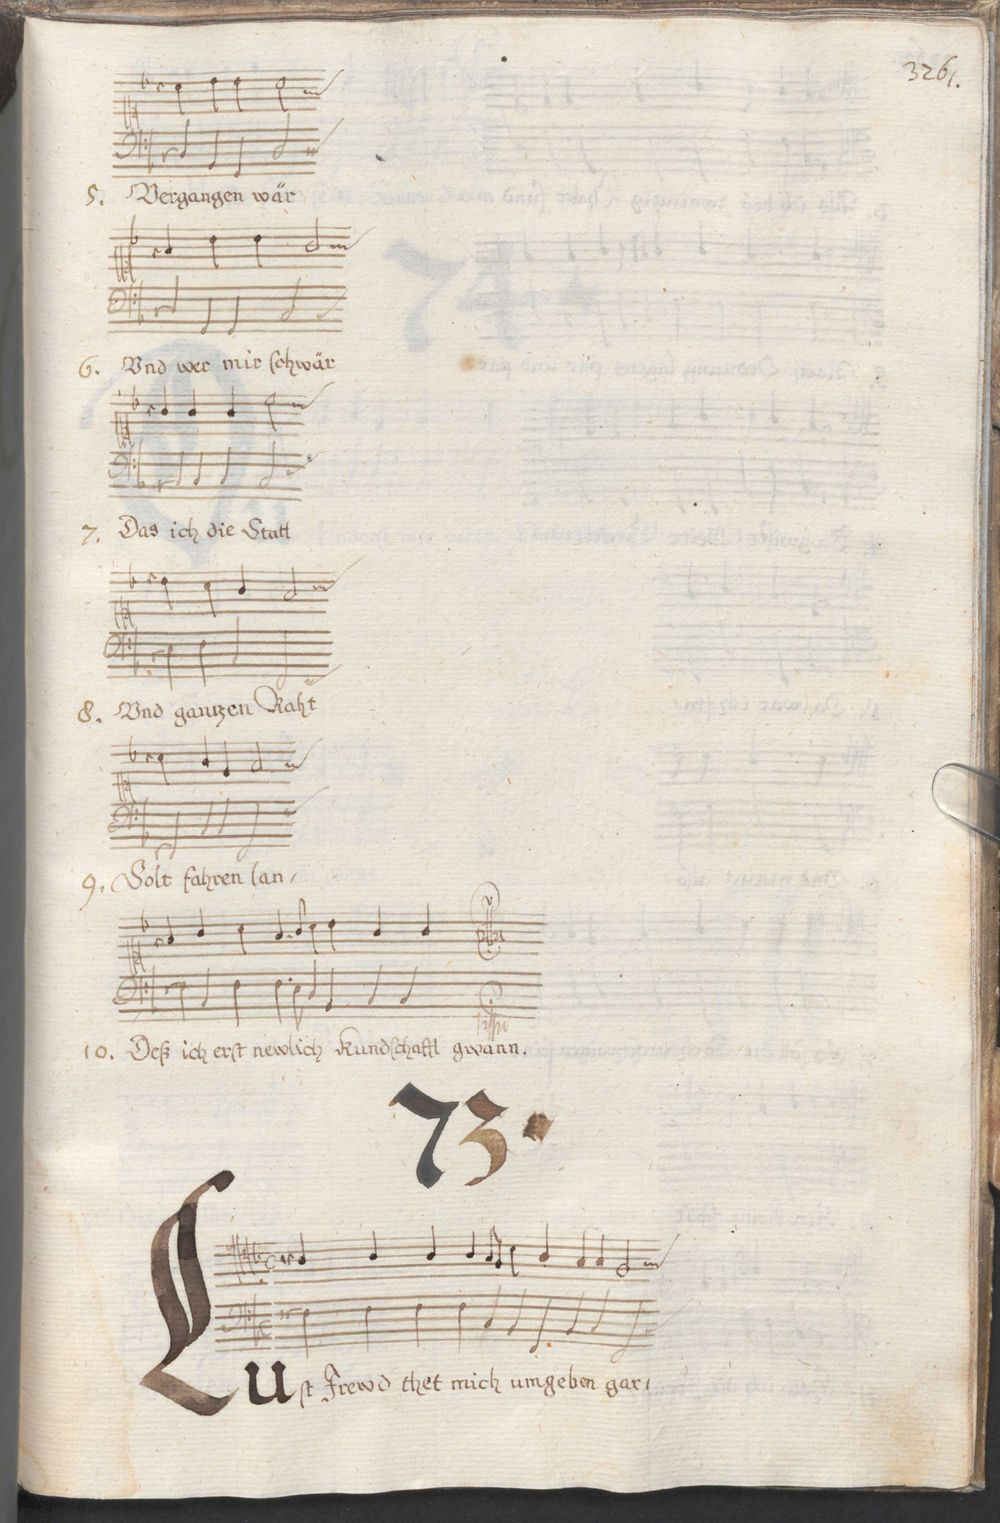 326.
5. Vergangen wär
6. Vnd wer mir schwär
7. Das ich die Statt
8. Vnd gantzen Raht
9. Solt fahren lan /
10. Deß ich erst newlich Kundschafft gwann.
73.
Lust Frewd thet mich umgeben gar /